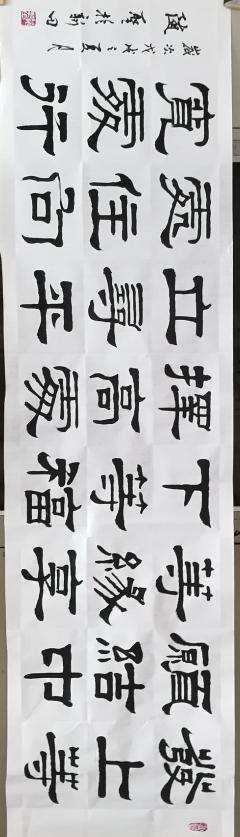 發上等
願結中
等緣享
下等福
擇高處
立尋平
處住向
寬處行
歲次戊戌之夏月
於